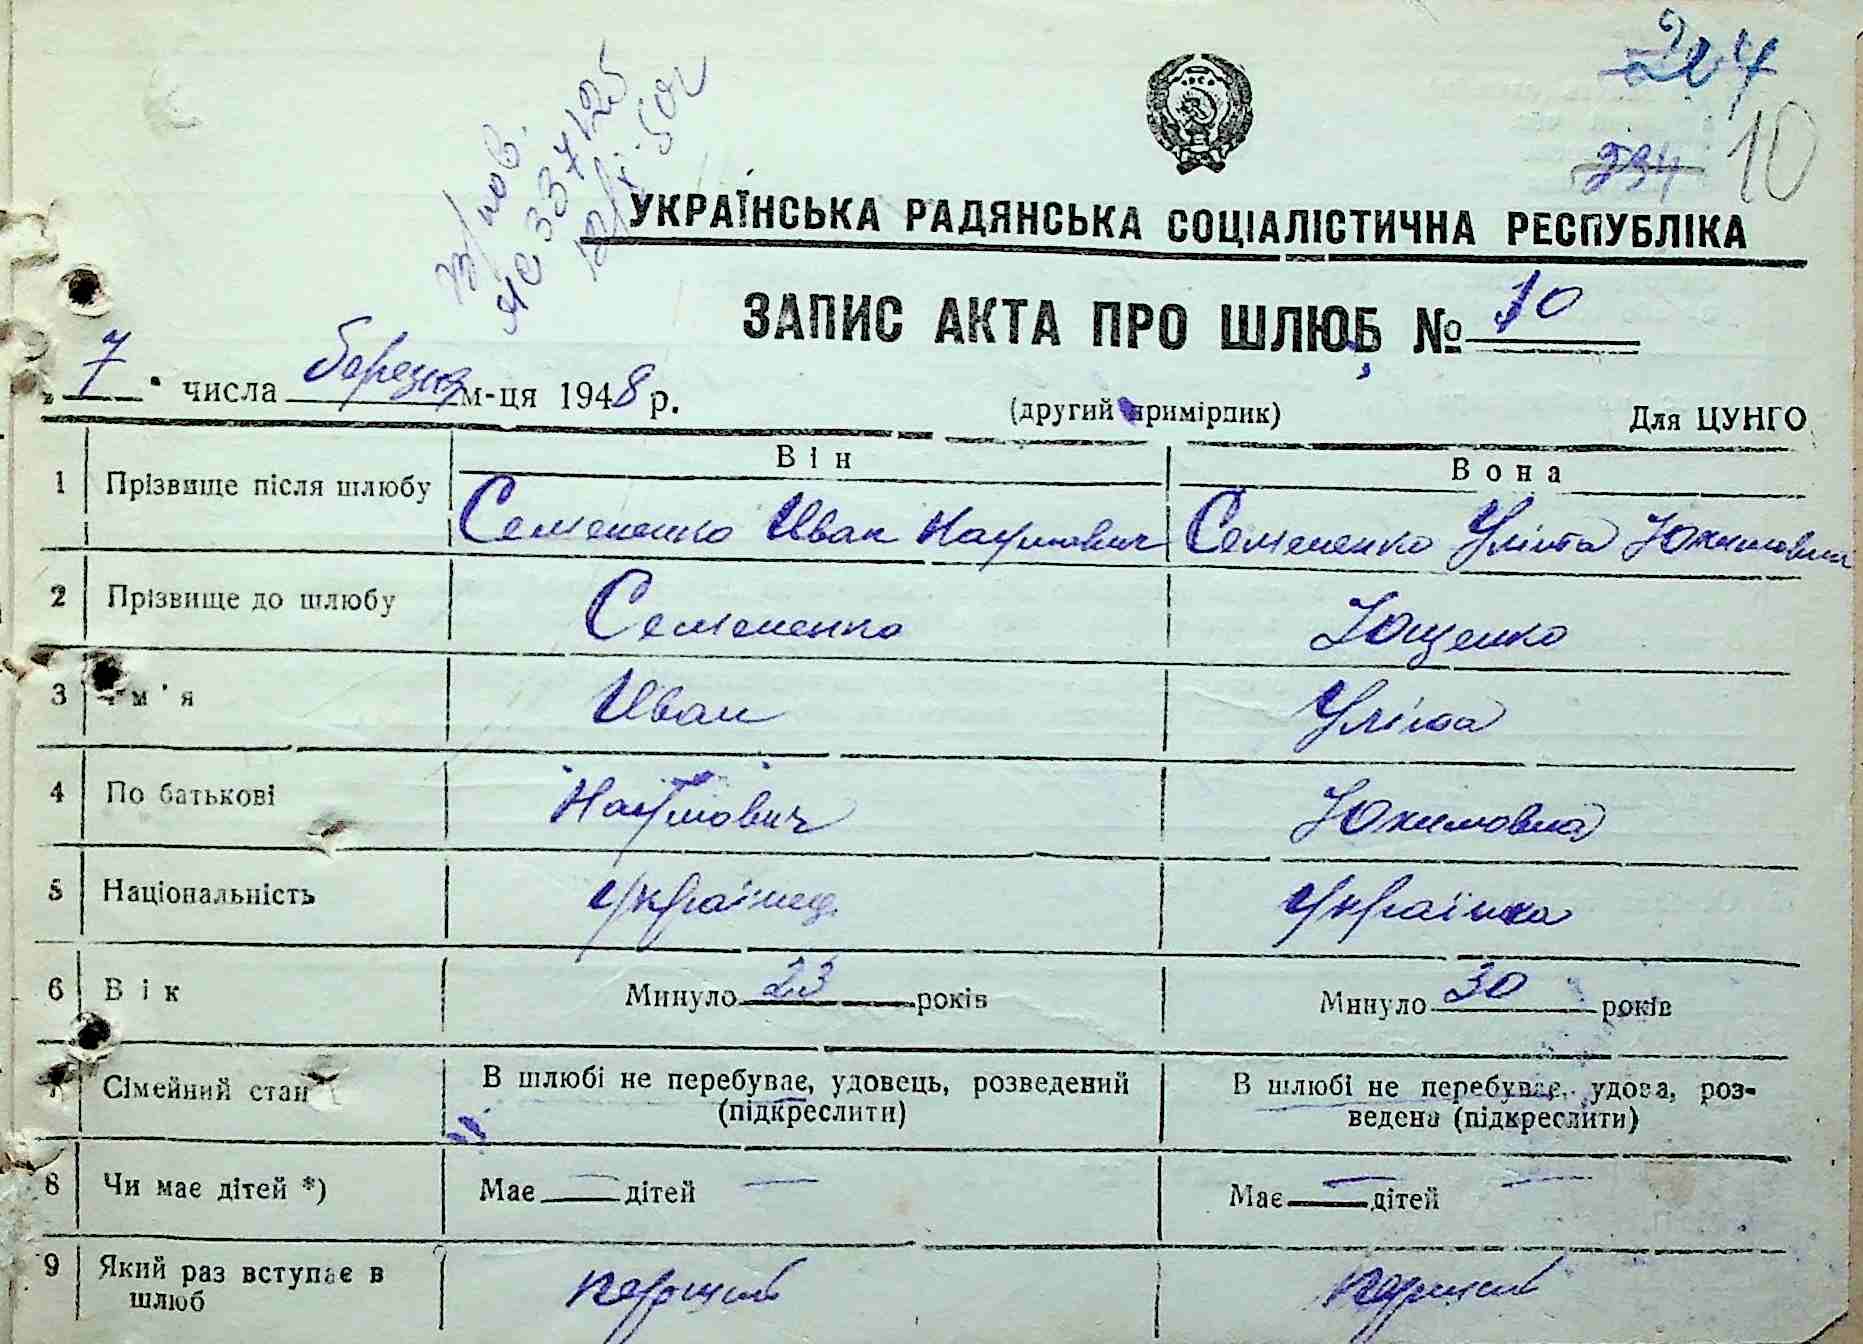 204
10
234
з/пов.
ЯС 337125
12/X-50г
УКРАЇНСЬКА РАДЯНСЬКА СОЦІАЛІСТИЧНА РЕСПУБЛІКА
ЗАПИС АКТА ПРО ШЛЮБ № 10
„ 7 " числа березня м-ця 1948 р. (другий примірник) Для ЦУНГО
Він Вона
1 Прізвище після шлюбу Семененко Иван Наумович Семененко Уліта Юхимовна
2 Прізвище до шлюбу Семененко Ющенко
3 Ім'я Иван Уліта
4 По батькові Наумович Юхимовна
5 Національність українец українка
6 Вік Минуло 23 років Минуло 30 років
7 Сімейний стан В шлюбі не перебуває, удовець, розведений (підкреслити) В шлюбі не перебуває, удова, роз-
ведена (підкреслити)
8 Чи має дітей *) Має — дітей — Має — дітей —
9 Який раз вступає в шлюб перший перший